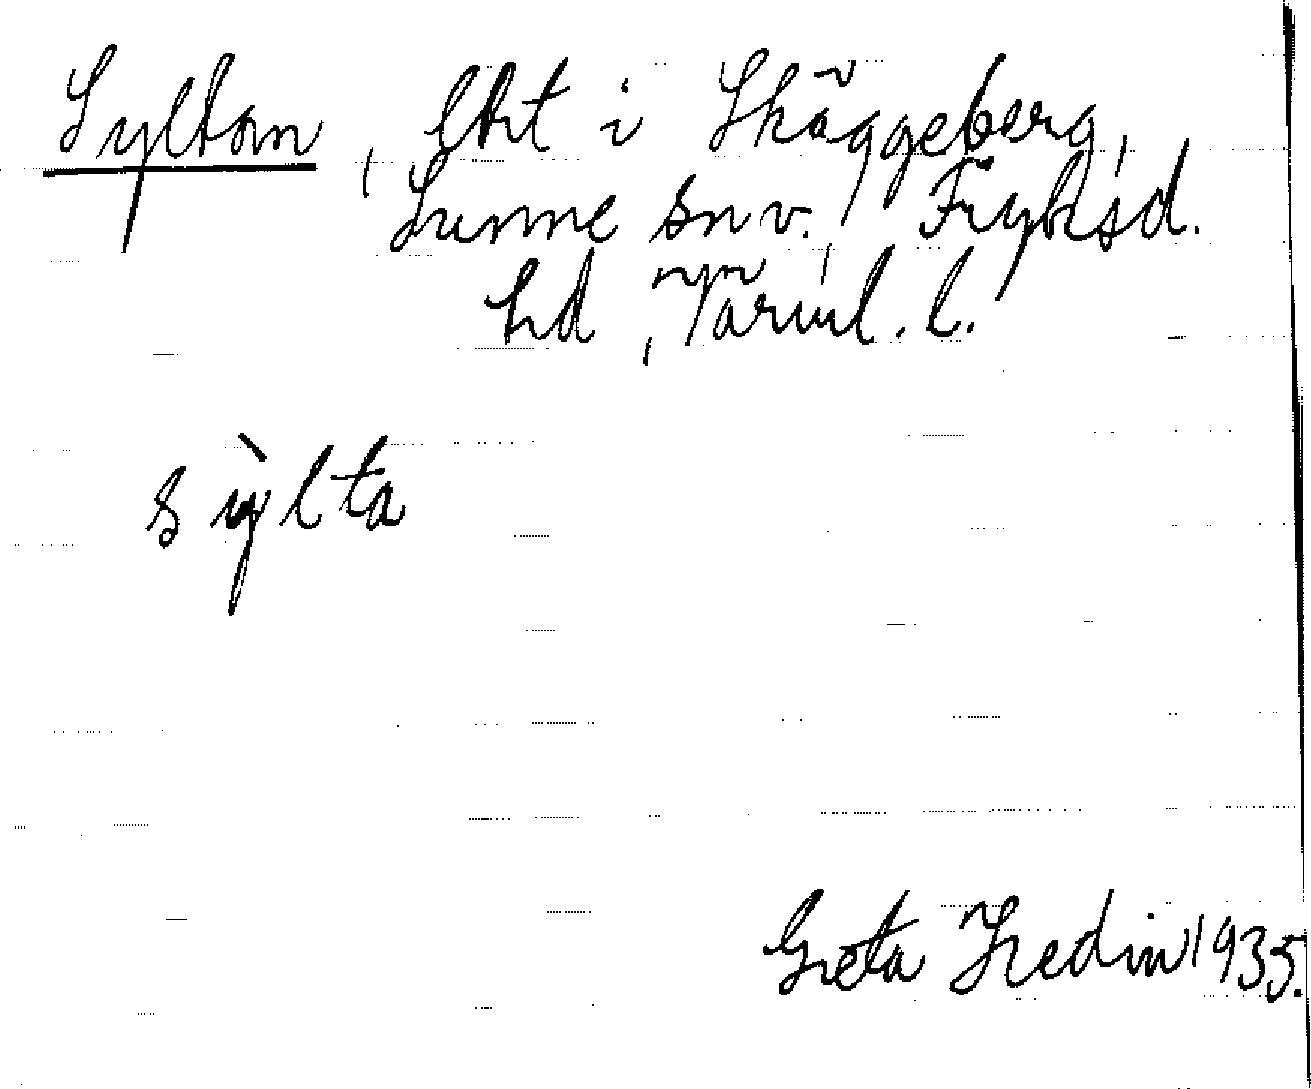 Syltan, lht i Skäggeberg,
Sunne snv., Fryksd.
hd, Värml. l.
sỳlta
Greta Hedin 1935.